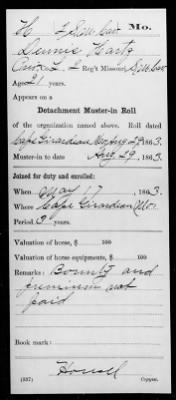 H 2 Mo.
Dennis Hartz
Reg't Missouri
Age 21 years.
Appears on a
Detachment Muster-in Roll
of the organization named above. Roll dated
Cape Girardeau Mo Aug 29, 1863.
Muster-in to date Aug 29, 1863.
Joined for duty and enrolled:
When May 17, 1863.
Where Cape Girardeau Mo.
Period 3 years.
Valuation of horse, $ 100
Valuation of horse equipments, $ 100
Remarks: Bounty and
premium not
paid
Book mark:
(337) Copyist.